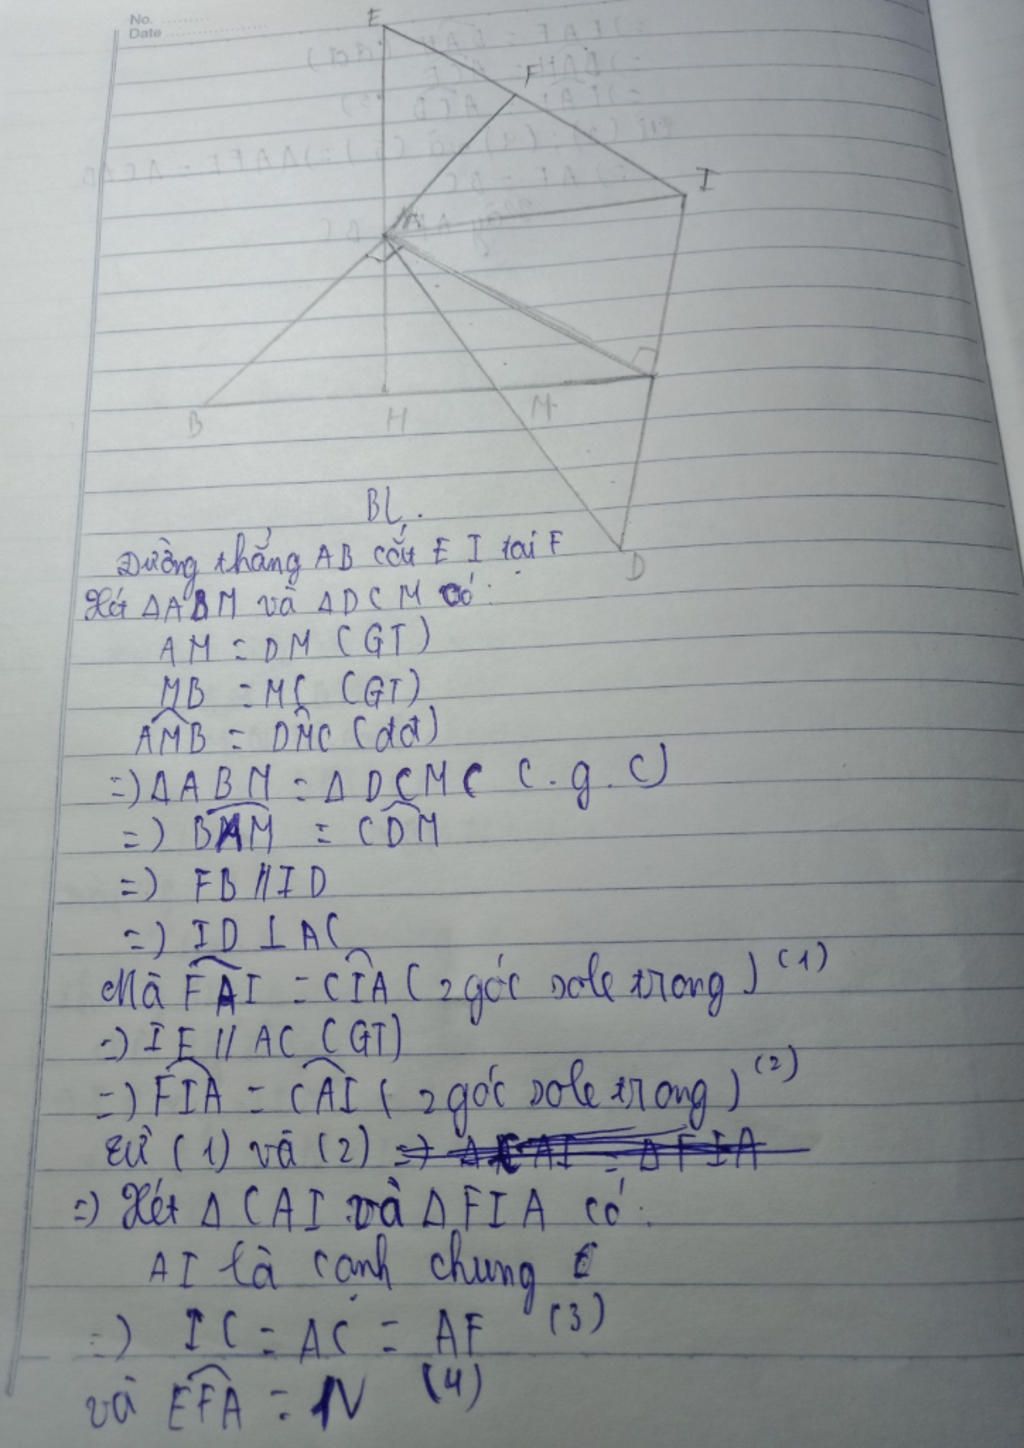 No.
Date
E
F
I
A
B
H
M
D
BL.
Đường thẳng AB cắt E I tại F
Xét ΔABM và ΔDCM có:
AM = DM (GT)
MB = MC (GT)
AMB = DMC (đđ)
=> ΔABM = ΔDCMC (c.g.c)
=> BAM = CDM
=> FB // ID
=> ID ⊥ AC
Mà FAI = CIA (2 góc sole trong) (1)
=> IE // AC (GT)
=> FIA = CAI (2 góc sole trong) (2)
Từ (1) và (2)
=> Xét ΔCAI và ΔFIA có:
AI là cạnh chung
=> IC = AC = AF (3)
và EFA = 1V (4)